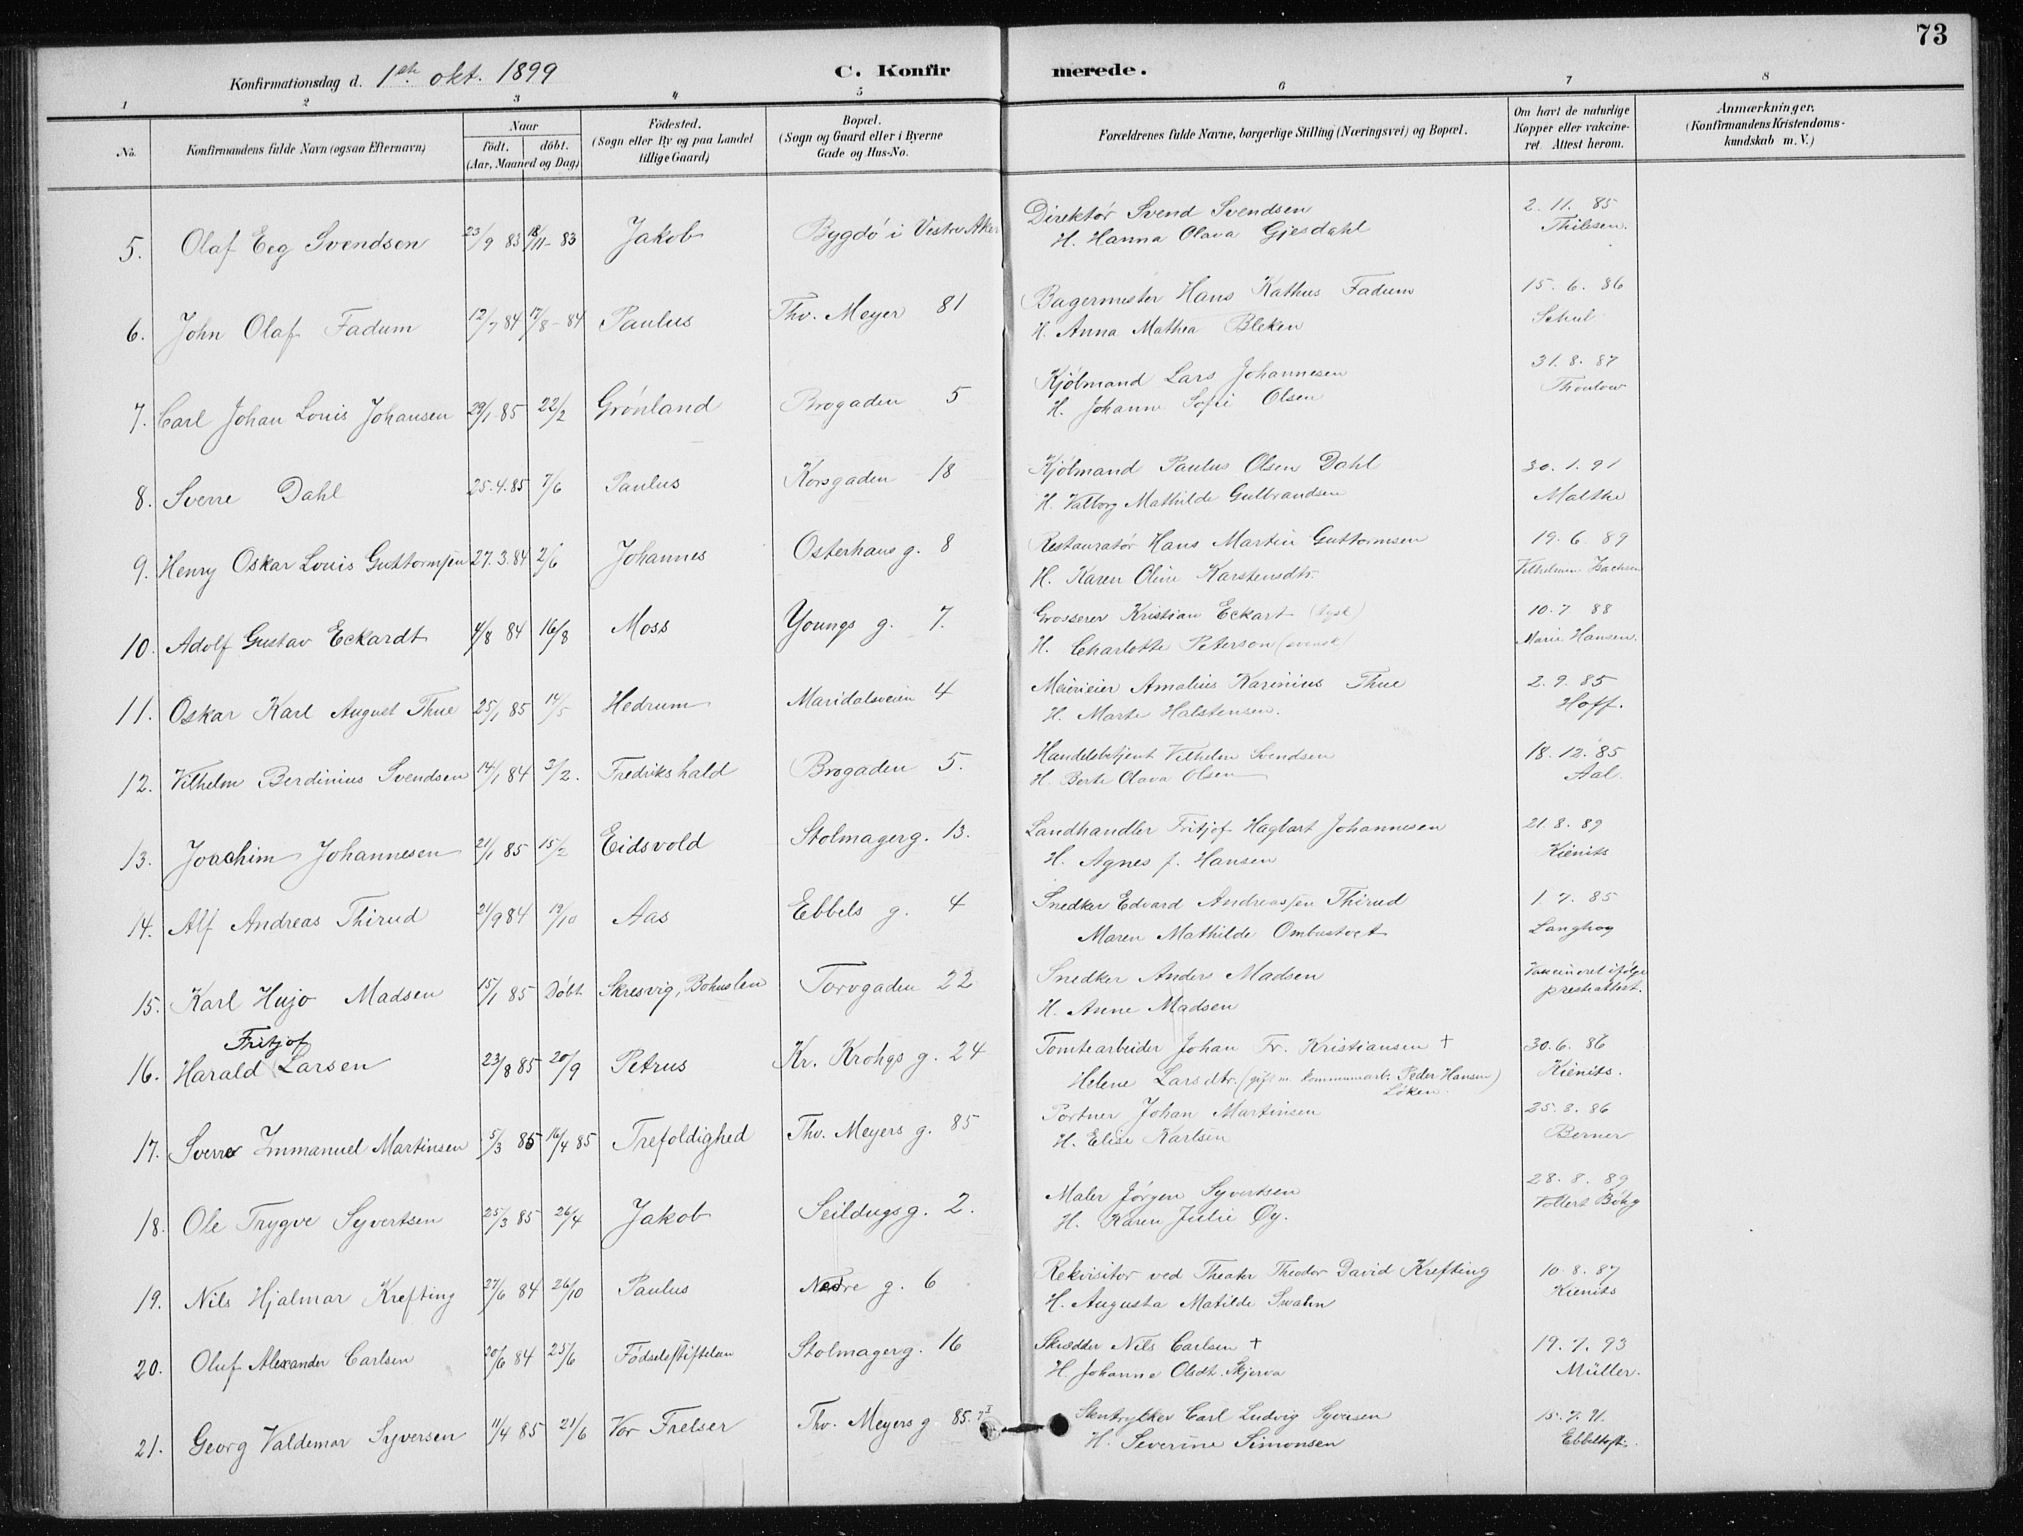 73
Konfirmationsdag d. 1ste okt. 1899 C. Konfirmerede.
1 2 3 4 5 6 7 8
No. Konfirmandens fulde Navn (ogsaa Efternavn) Naar födt. döbt. (Aar, Maaned og Dag) Födested. (Sogn eller By og paa Landet tillige Gaard) Bopæl. (Sogn og Gaard eller i Byerne Gade og Hus-No. Forældrenes fulde Navne, borgerlige Stilling (Næringsvei) og Bopæl. Om havt de naturlige Kopper eller vakcineret. Attest herom. Anmærkninger. (Konfirmandens Kristendomskundskab m. V.)
5. Olaf Eeg Svendsen 23/9 83 18/11-83 Jakob Bygdö i Vestre Aker Direktør Svend Svendsen 2. 11. 85
H. Hanna Olava Gjesdahl Thilesen.
6. John Olaf Fadum 12/7 84 17/8-84 Paulus Thv. Meyer 81 Bagermester Hans Kathus Fadum 15. 6. 86
H. Anna Mathea Bleken Schul
7. Carl Johan Louis Johansen 29/1 85 22/2 Grönland Brogaden 5 Kjölmand Lars Johannesen 31. 8. 87
H. Johanne Sofie Olsen
8. Sverre Dahl 25.4.85 7/6 Paulus Korsgaden 18 Kjölmand Paulus Olsen Dahl 30. 1. 91
H. Valborg Mathilde Gulbrandsen Malthe
9. Henry Oskar Louis Guttormsen 27.3.84 2/6 Johannes Osterhaus g. 8 Restauratør Hans Martin Guttormsen 19. 6. 89
H. Karen Oline Karstensdtr. Vilhelmine Isachsen
10. Adolf Gustav Eckardt 4/8 84 16/8 Moss Youngs g. 7. Grosserer Kristian Eckart (tysk) 10. 7 88
H. Charlotte Peterson (svensk) Marie Hansen.
11. Oskar Karl August Thue 25/1 85 14/5 Hedrum Maridalsveien 4 Meierieier Amalius Karinius Thue 2. 9. 85
H. Marte Halstensen. Hoff.
12. Vilhelm Berdinius Svendsen 14/1 84 3/2. Fredrikshald Brogaden 5. Handelsbetjent Vilhelm Svendsen 18. 12. 85
H. Berte Olava Olsen Aal.
13. Joachim Johannesen 21/1 85 15/2 Eidsvold Stolmagerg. 13. Landhandler Fritjof Hagbart Johannesen 21. 8. 89
H. Agnes f. Hansen Kienits
14. Alf Andreas Thirud 21/9 84 19/10 Aas Ebbels g. 4 Snedker Edvard Andreassen Thirud 1. 7. 85
Maren Mathilde Ombustvet Langhog
15. Karl Hujo Madsen 15/1 85 Döbt Skresvig, Bohuslen Torvgaden 22 Snedker Anders Madsen Vaccineret ifølge
H. Anne Madsen presteattest.
16. Harald Fritjof Larsen 23/8 85 20/9 Petrus Kr. Krohgs g. 24 Tomtearbeider Johan Fr. Kristiansen + 30. 6. 86
Helene Larsdtr. (gift m. kommunearb. Peder Hansen Løken) Kienits.
17. Sverre Immanuel Martinsen 5/3 85 16/4 85 Trefoldighed Thv. Meyers g. 85 Portner Johan Martinsen 25. 8. 86
H. Elise Karlsen Berner
18. Ole Trygve Syvertsen 25/3 85 26/4 Jakob Seildugsg. 2. Maler Jørgen Syvertsen 28. 8. 89
H. Karen Julie Øy. Vollert Böhg
19. Nils Hjalmar Krefting 27/6 84 26/10 Paulus Nedre g. 6 Rekvisitør ved Theater Theodor David Krefting 10. 8. 87
H. Augusta Matilde Swahn Kienits
20. Oluf Alexander Carlsen 20/6 84 25/6 Födselsstiftelsen Stolmagerg. 16 Skrædder Nils Carlsen + 19. 7. 93
H. Johanne Olsdt. Skjerva Müller.
21. Georg Valdemar Syversen 11/4 85 21/6 Vor Frelser Thv. Meyers g. 85. Stentrykker Carl Ludvig Syversen 15. 7. 91.
H. Severine Simonsen Ebbeltoft.